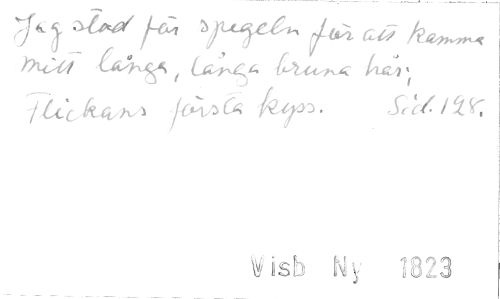 Jag stod för spegeln för att kamma
mitt långa, långa bruna hår;
Flickans första kyss. Sid. 128.
Visb Ny 1823